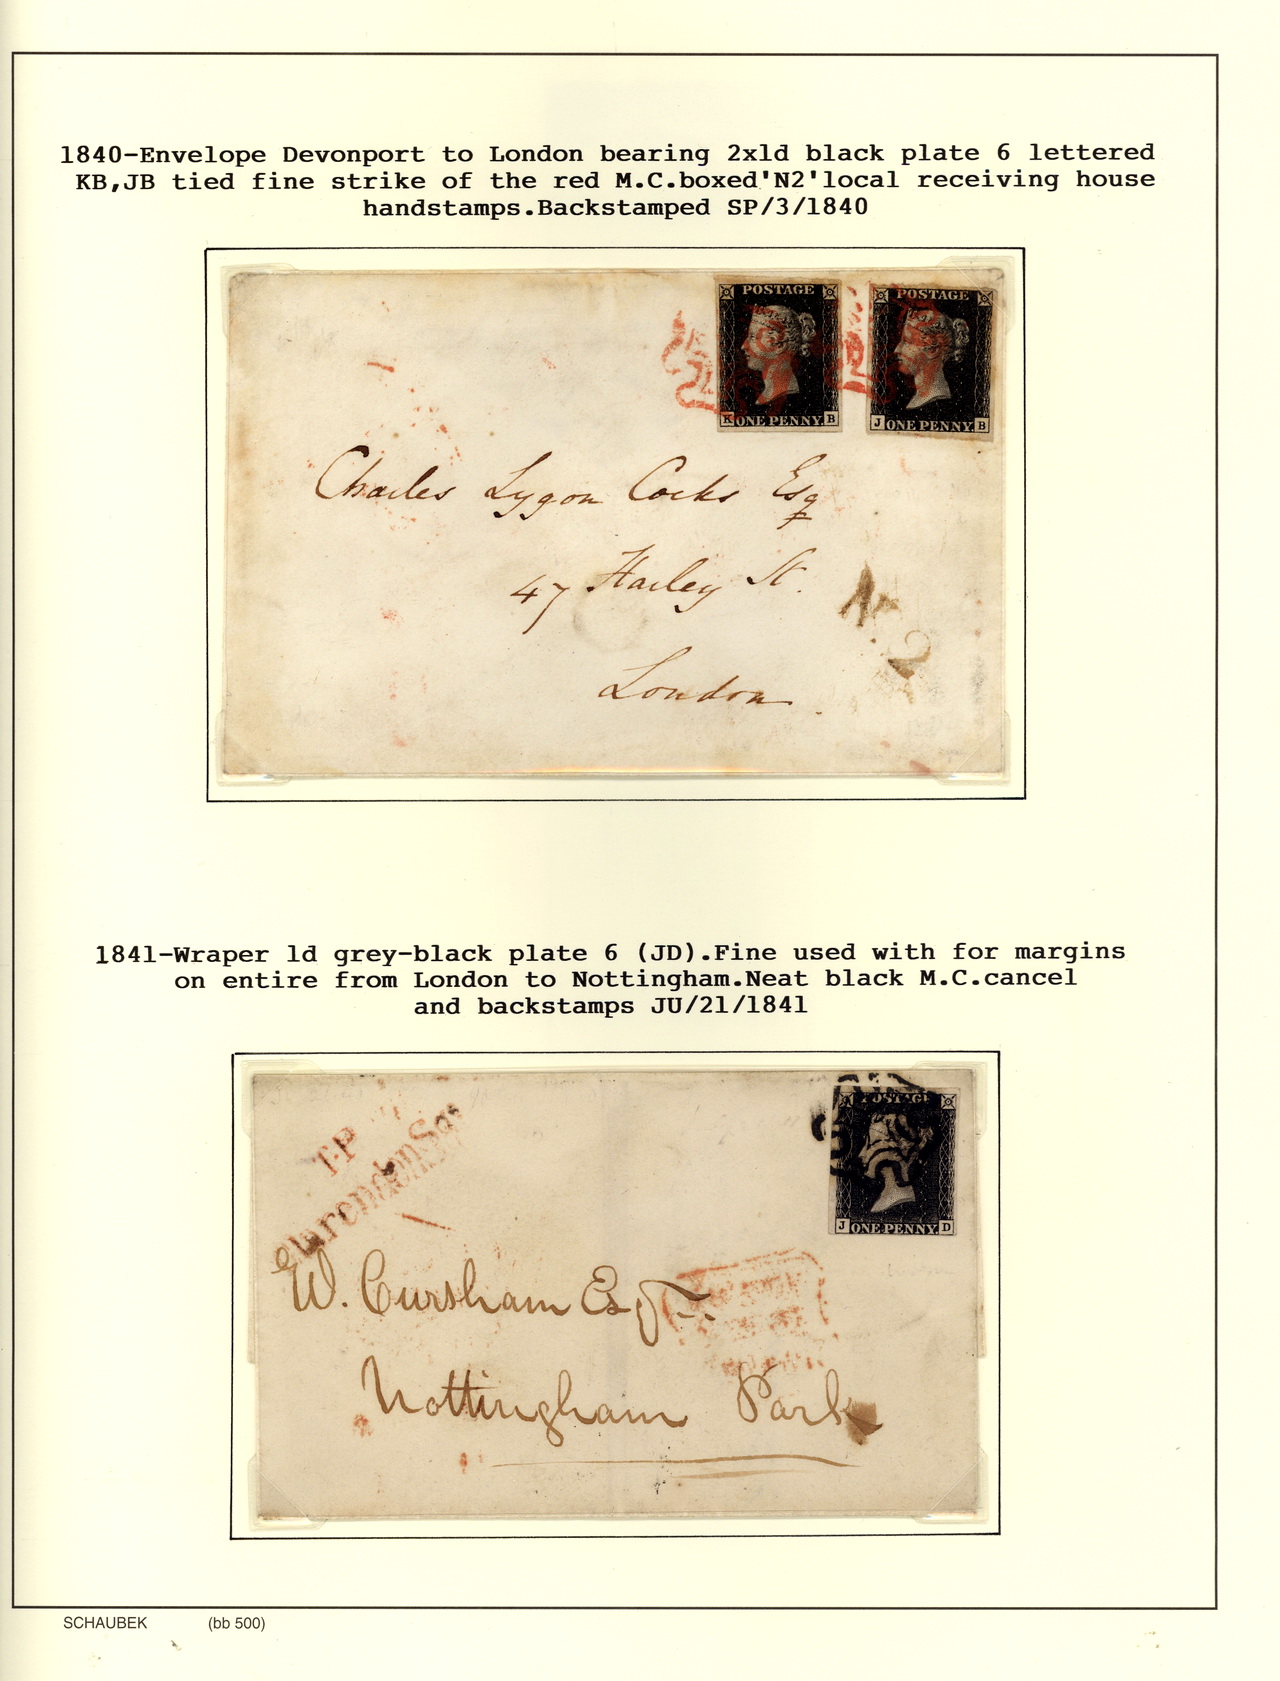 1840-Envelope Devonport to London bearing 2x1d black plate 6 lettered
KB,JB tied fine strike of the red M.C.boxed'N2'local receiving house
handstamps.Backstamped SP/3/1840
POSTAGE
K ONE PENNY. B
POSTAGE
J ONE PENNY. B
Charles Lygon Cocks Esq
47 Harley St.
London
No. 2
1841-Wraper 1d grey-black plate 6 (JD).Fine used with for margins
on entire from London to Nottingham.Neat black M.C.cancel
and backstamps JU/21/1841
T.P
POSTAGE
J ONE PENNY. D
W. Cursham Esqr.
Nottingham Park
SCHAUBEK (bb 500)